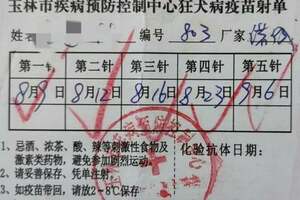 玉林市疾病预防控制中心狂犬病疫苗射单
姓名 编号 803 厂家
第一针 第二针 第三针 第四针 第五针
8月9日 8月12日 8月16日 8月23日 9月6日
1、忌酒、浓茶、酸、辣等刺激性食物及
激素类药物，避免参加剧烈运动。
2、请妥善保存、凭单注射
3、如疫苗带回，请放2-8℃保存
化验抗体日期：